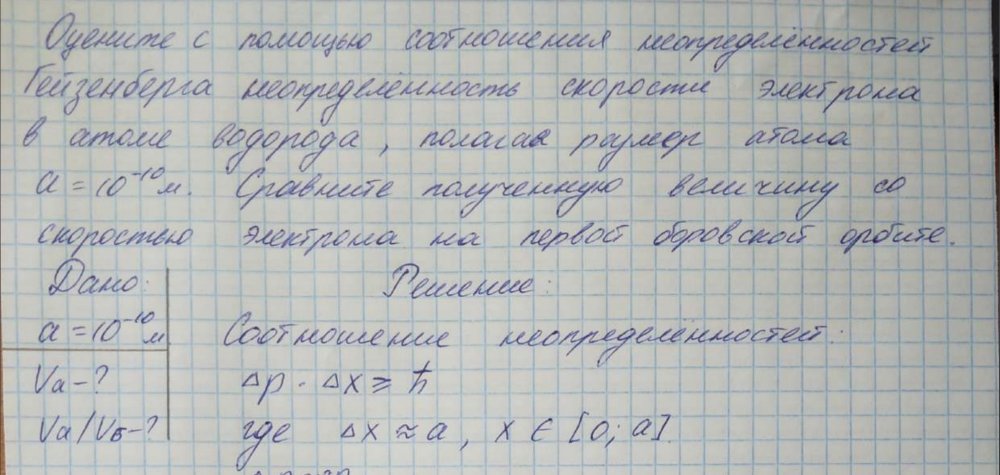 Оцените с помощью соотношения неопределённостей
Гейзенберга неопределённость скорости электрона
в атоме водорода, полагая размер атома
a = 10⁻¹⁰ м. Сравните полученную величину со
скоростью электрона на первой боровской орбите.
Дано: Решение:
a = 10⁻¹⁰ м Соотношение неопределённостей:
Va - ? Δp · Δx ≥ ħ
Va/Vб - ? где Δx ≈ a, x ∈ [0; a]